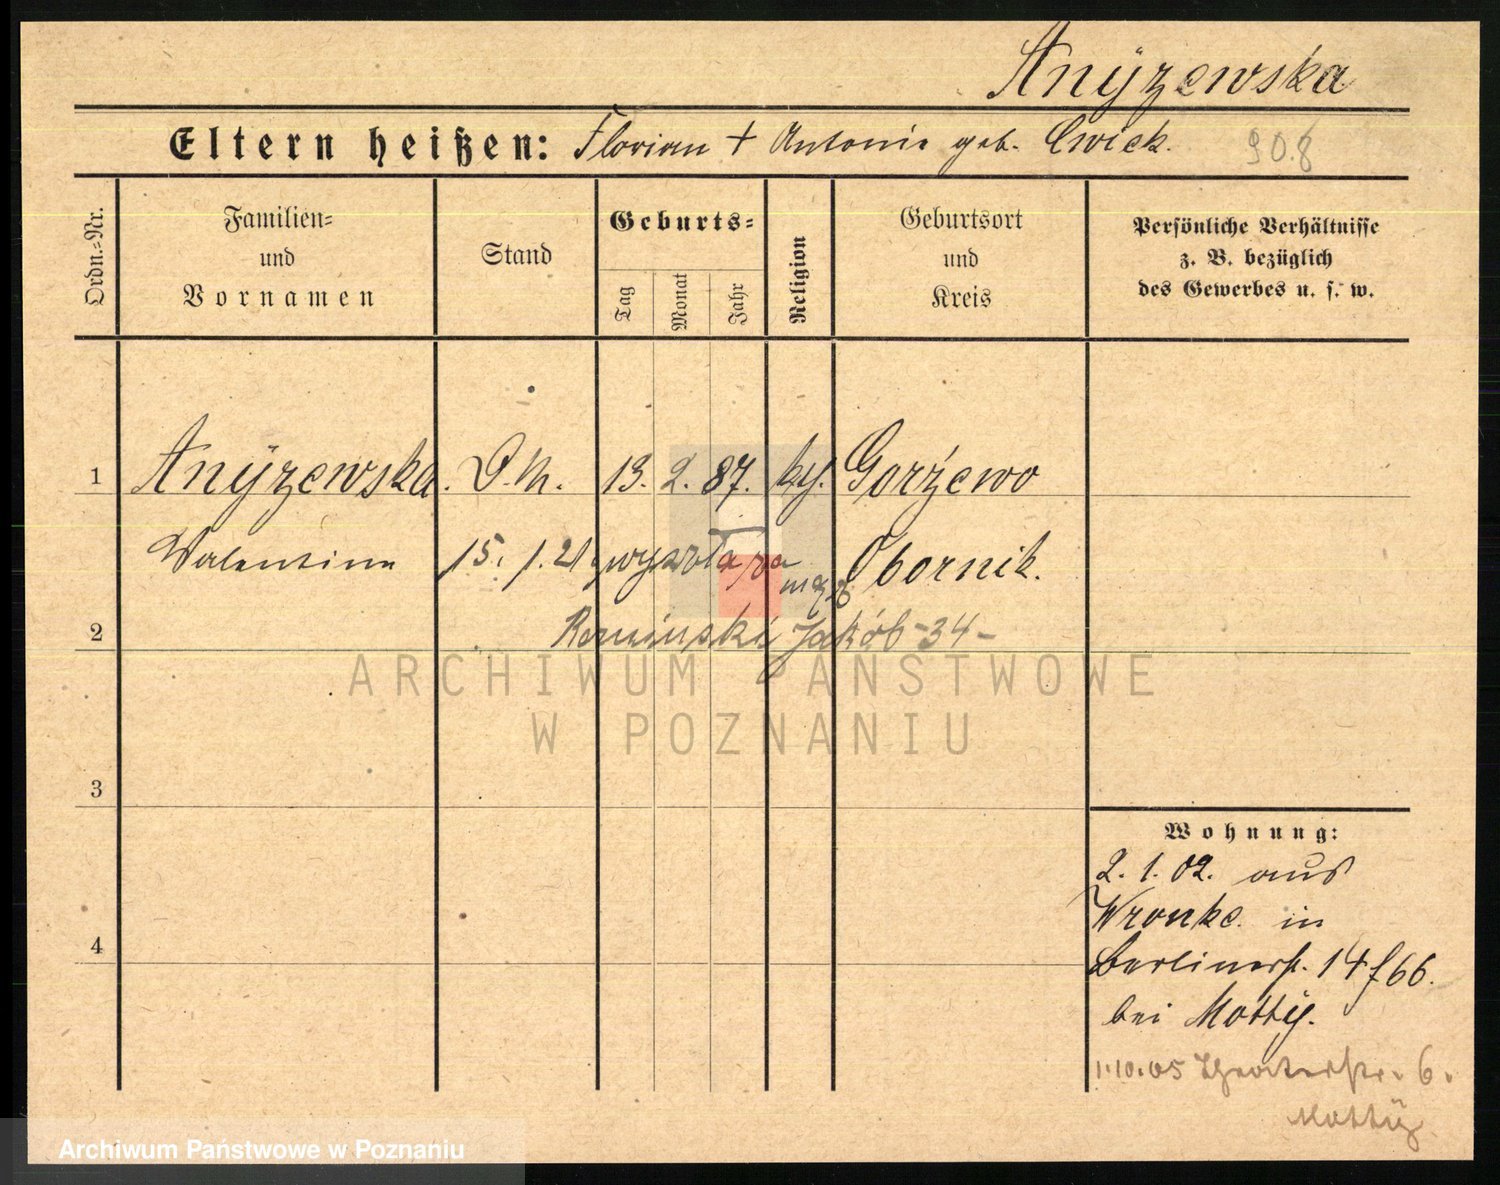 Anÿzewska
Eltern heißen: Florian + Antonie geb. Cwiek. 90.8
Ordn.=Nr.
Familien=
und
Vornamen
Stand
Geburts=
Tag
Monat
Jahr
Religion
Geburtsort
und
Kreis
Persönliche Verhältnisse
z. B. bezüglich
des Gewerbes u. s. w.
1 Anÿzewska. D.M. 13. 2. 87. Gorźewo
Valentina 15. 1. 21 wyszła za mąż Obornik.
2 Jakób -34-
ARCHIWUM PAŃSTWOWE
W POZNANIU
3
Wohnung:
2. 1. 02. aus
Wronke in
4
Berlinerst. 14 f 66.
bei Motty.
1.10.05 Theaterstr. 6.
Motty
Archiwum Państwowe w Poznaniu